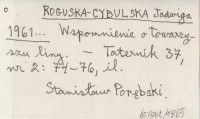 ROGUSKA-CYBULSKA Jadwiga
1961... Wspomnienie o towarzy-
szu liny. – Taternik 37,
nr 2: 74-76, il.
Stanisław Porębski.